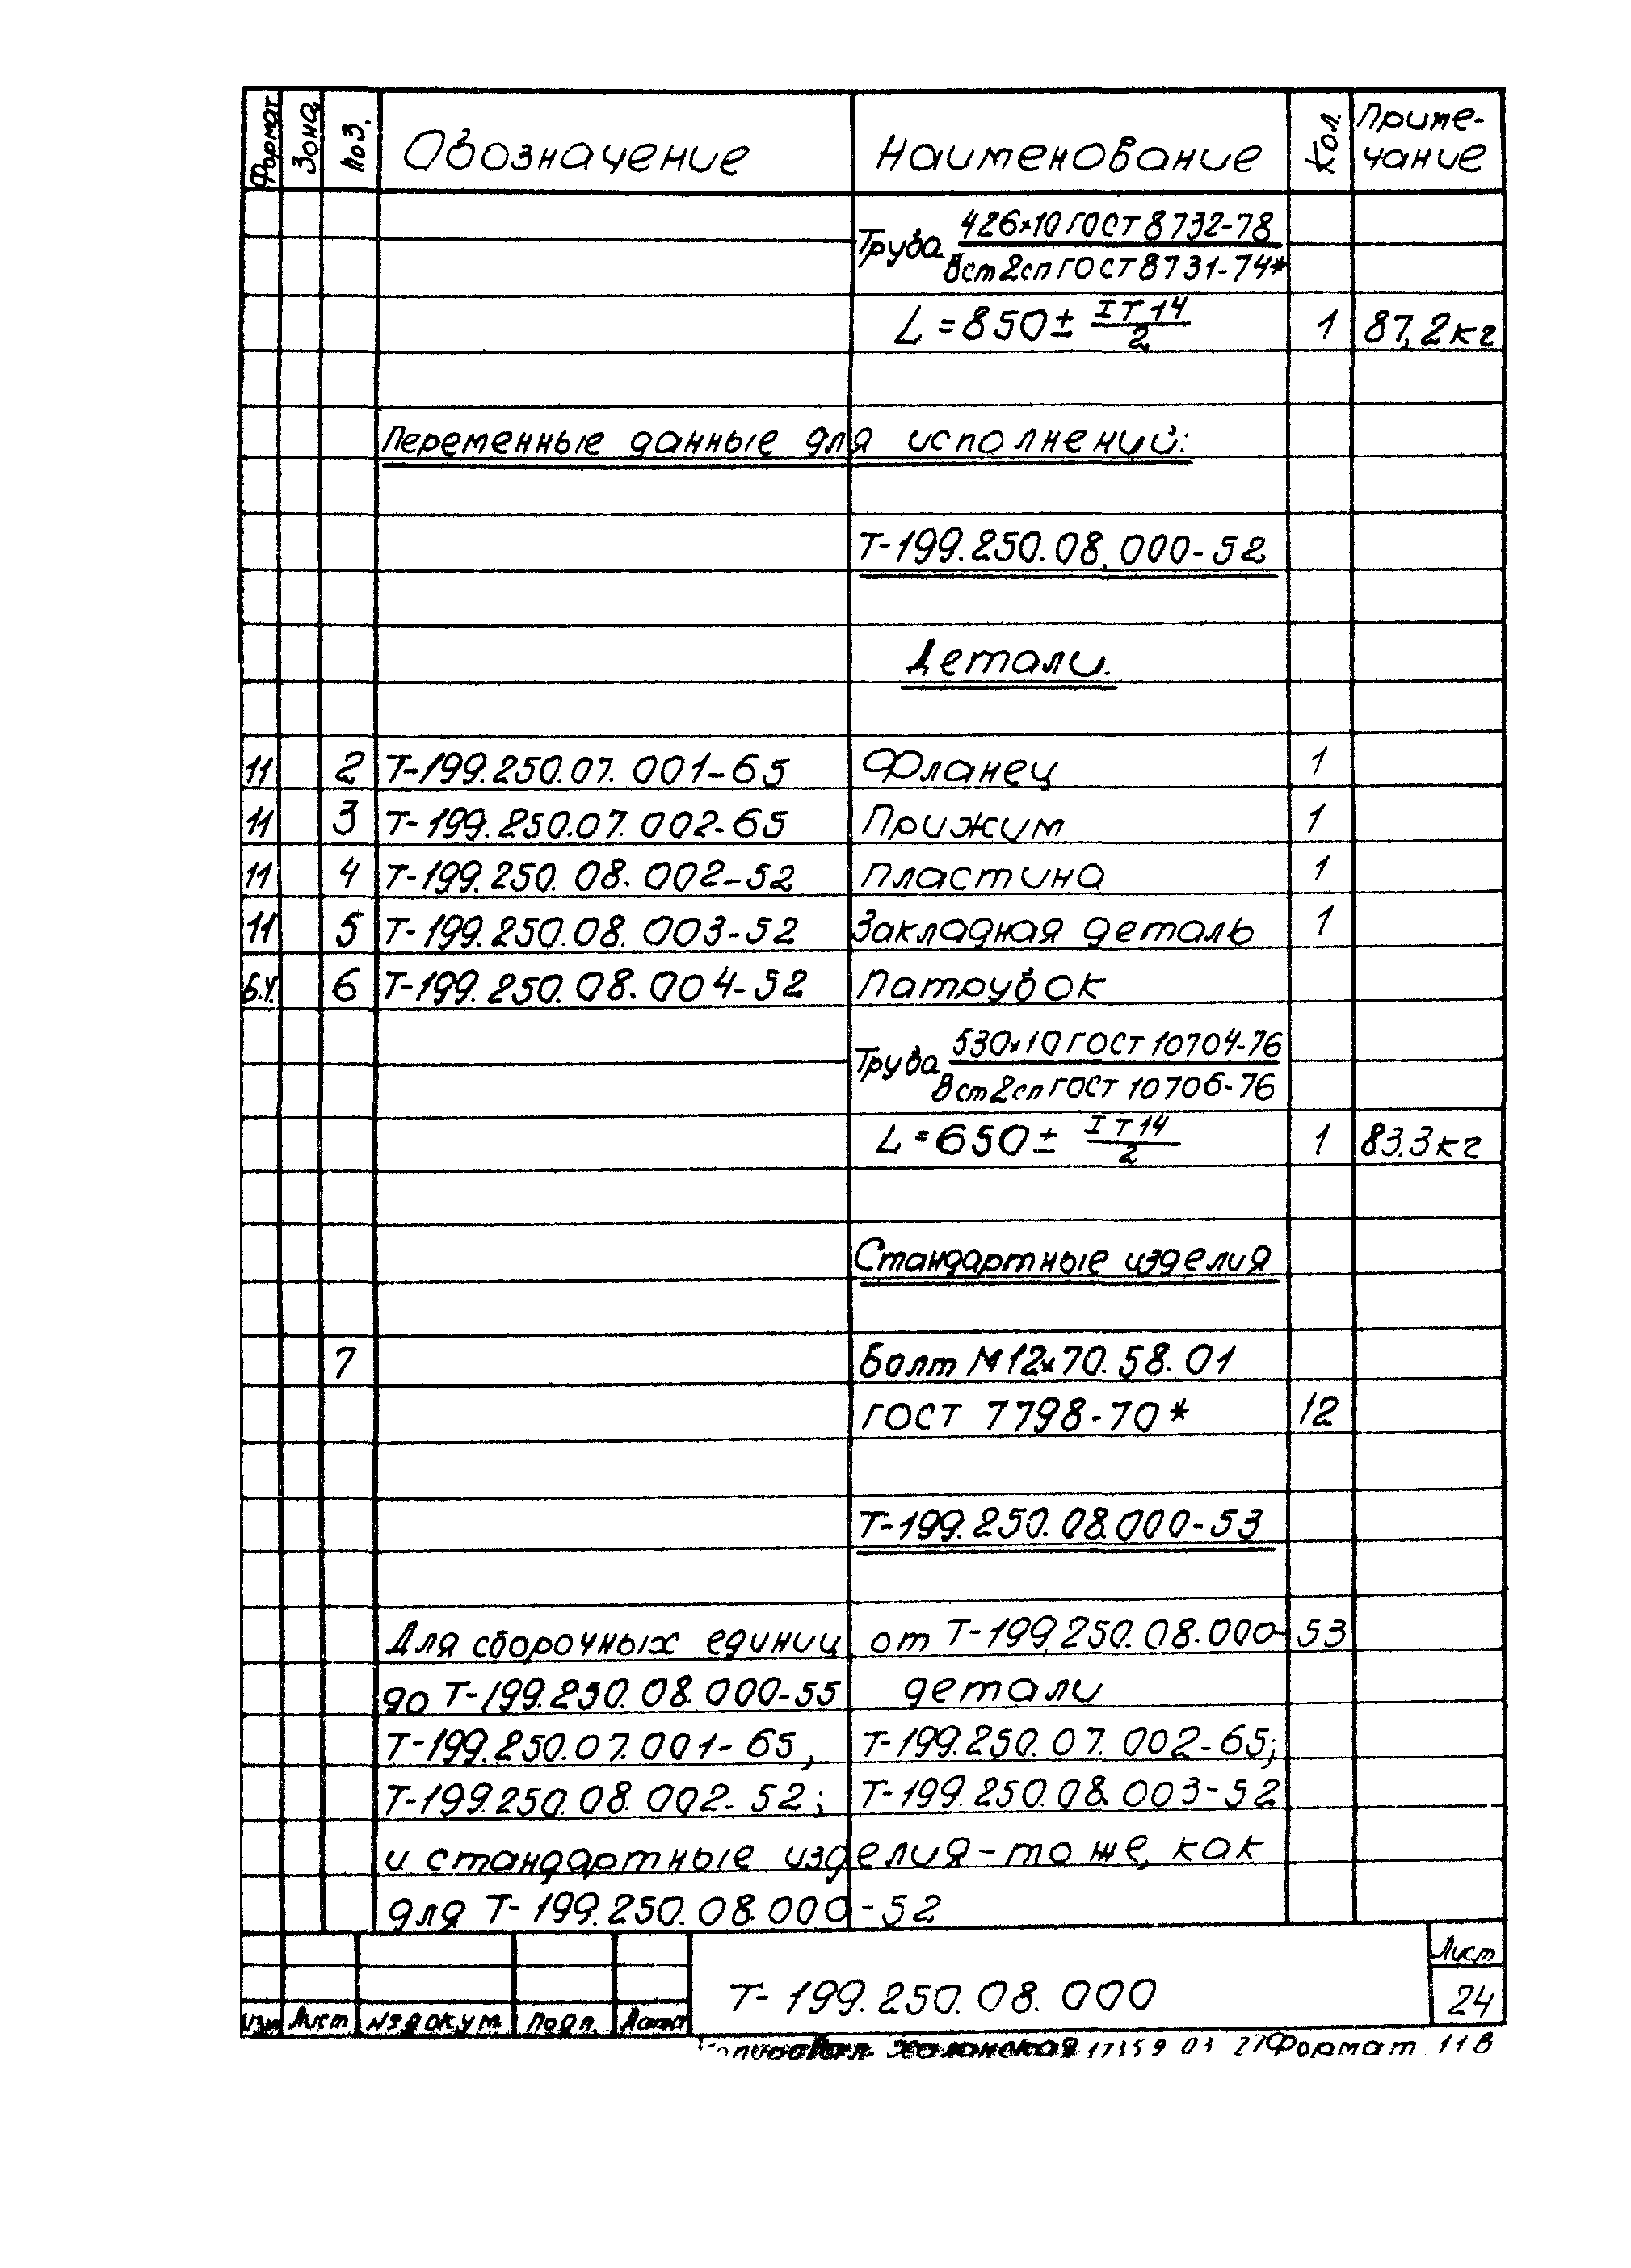 Формат Зона Поз. Обозначение Наименование Кол. Приме-
чание
Труба 426×10 ГОСТ 8732-78
Вст2сп ГОСТ 8731-74*
L=850± IT14/2 1 87,2кг
Переменные данные для исполнений:
Т-199.250.08.000-52
Детали.
11 2 Т-199.250.07.001-65 Фланец 1
11 3 Т-199.250.07.002-65 Прижим 1
11 4 Т-199.250.08.002-52 Пластина 1
11 5 Т-199.250.08.003-52 Закладная деталь 1
Б.Ч. 6 Т-199.250.08.004-52 Патрубок
Труба 530×10 ГОСТ 10704-76
Вст2сп ГОСТ 10706-76
L=650± IT14/2 1 83,3кг
Стандартные изделия
7 Болт М12×70.58.01
ГОСТ 7798-70* 12
Т-199.250.08.000-53
Для сборочных единиц от Т-199.250.08.000-53
до Т-199.250.08.000-55 детали
Т-199.250.07.001-65, Т-199.250.07.002-65;
Т-199.250.08.002-52; Т-199.250.08.003-52
и стандартные изделия-то же, как
для Т-199.250.08.000-52
Изм Лист №докум. Подп. Дата Т-199.250.08.000 Лист
24
17359 03 27 Формат 11В